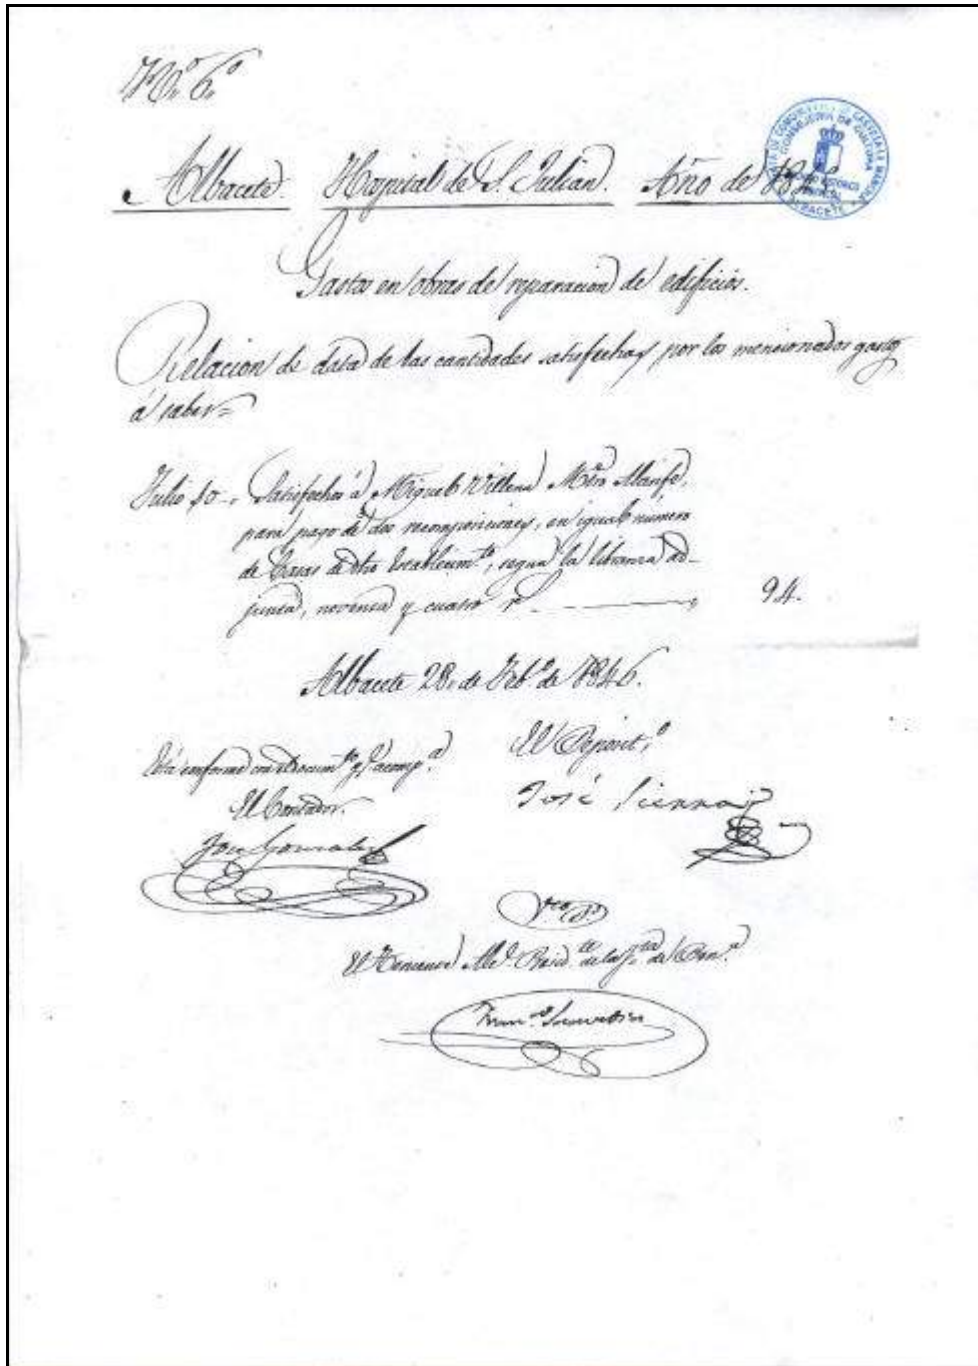 N.º 6.º
Albacete. Hospital de S. Julian. Año de
Gastos en obras de reparacion de edificios.
Relacion de data de las cantidades satisfechas por los mencionados gastos
á saber=
Julio 30., Satisfechos á Miguel Villena Mtro Alarife,
para pago de dos recomposiciones, en igual número
de Casas de dho Establecim.to, segun la libranza ad-
junta, noventa y cuatro r.s 94.
Albacete 28, de Feb.º de 1846.
El Deposit.º
Está conforme con el Docum.to q.e acomp.a
El Contador.
José Sierra
Jose Gonzalez
V.to B.º
El Teniente Alc.e Presid.te de la J.ta de Ben.a
Fran.co